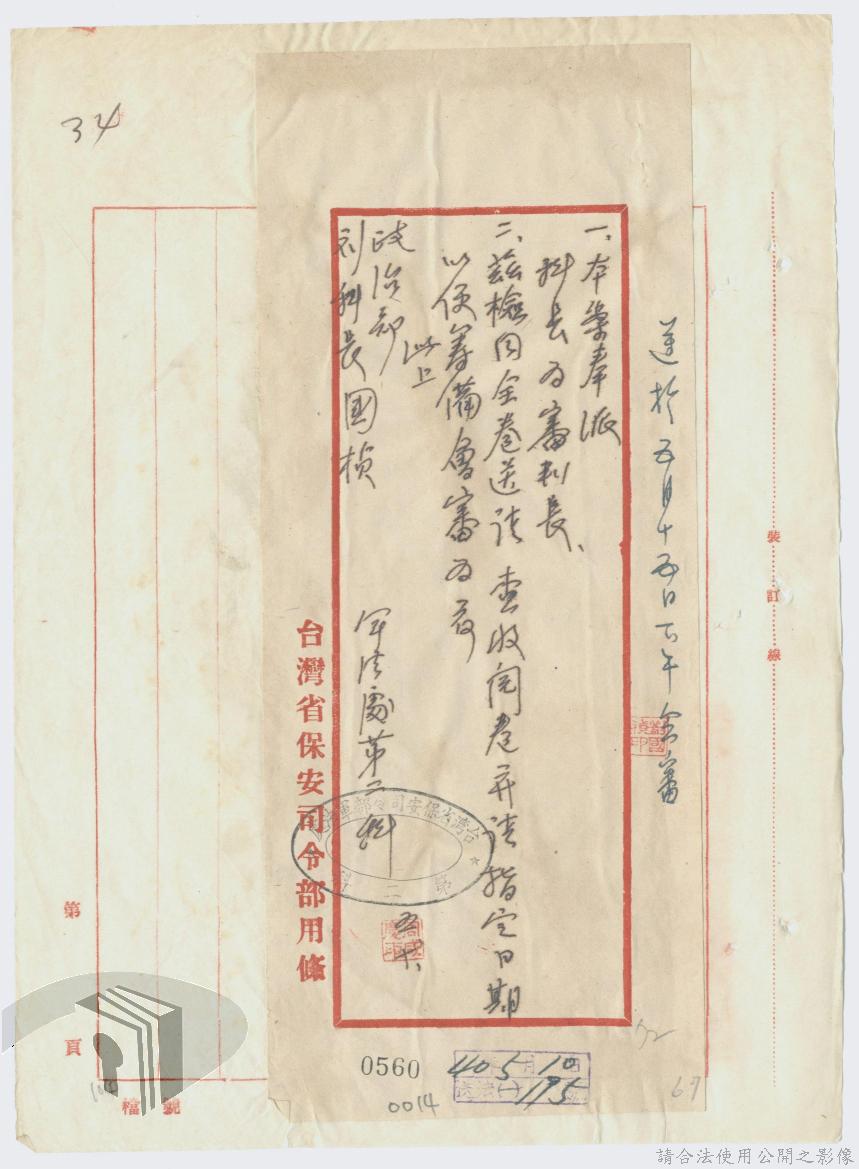 34
逆於五月十五日下午會審
裝訂線
一、本案奉派
科長為審判長、
二、茲檢同全卷送請 查收閱卷并請指定日期
以便籌備會審為荷
此上
政治部
劉科長國楨
軍法處第二科
五、十、
台灣省保安司令部用條
第 頁
檔號
0560
40 5 月 10 日
195
0014
72
67
請合法使用公開之影像